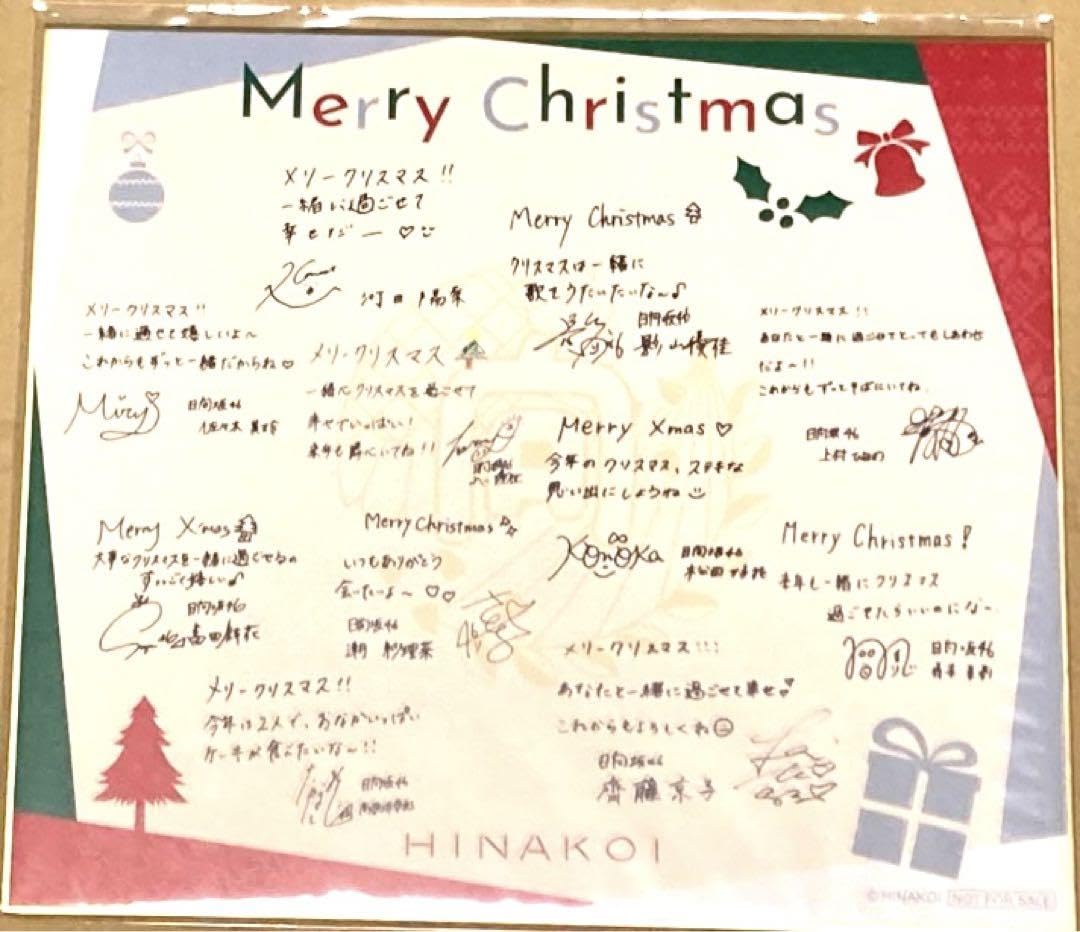 Merry Christmas
メリークリスマス!!
一緒に過ごせて
幸せだー♡
河田陽菜
Merry Christmas
クリスマスは一緒に
歌をうたいたいな〜♪
日向坂46
影山優佳
メリークリスマス!!
一緒に過せて嬉しいよ〜
これからもずっと一緒だからね♡
Mirey♡
日向坂46
佐々木美玲
メリークリスマス
一緒にクリスマスを過ごせて
幸せでいっぱい!
来年も
いてね!!
日向坂46
メリークリスマス!!
あなたと一緒に過ごせてとってもしあわせ
だよ〜!!
これからもずっとそばにいてね.
日向坂46
上村ひなの
Merry Xmas♡
今年のクリスマス、ステキな
思い出にしようね
Konoka
日向坂46
松田好花
Merry X'mas
大事なクリスマスを一緒に過ごせるの
すっごく嬉しい♪
日向坂46
富田鈴花
Merry Christmas
いつもありがとう
会いたいよ〜♡♡
日向坂46
潮紗理菜
Merry Christmas!
来年も一緒にクリスマス
過ごせたらいいのにな〜
日向坂46
メリークリスマス!!
今年は2人で、おなかいっぱい
ケーキが食べたいな〜!!
日向坂46
メリークリスマス!!!
あなたと一緒に過ごせて幸せ♡
これからもよろしくね
日向坂46
齊藤京子
HINAKOI
©HINAKOI NOT FOR SALE